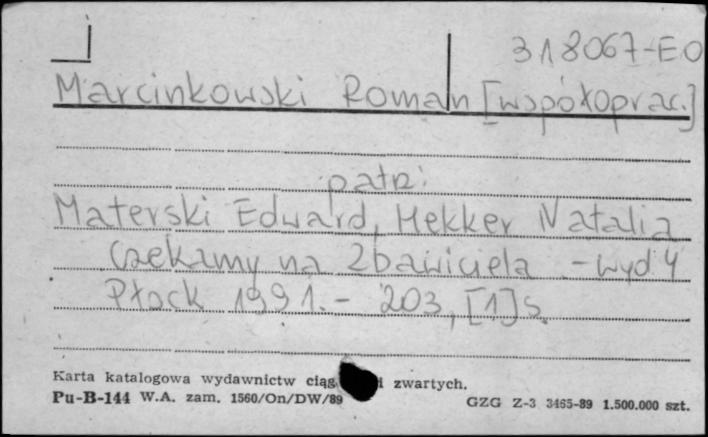 318067-EO
Marcinkowski Roman [współoprac.]
patrz:
Materski Edward, Hekker Natalia
Czekamy na Zbawiciela - wyd 4
Płock 1991. - 203, [1] s.
Karta katalogowa wydawnictw ciąg i zwartych.
Pu-B-144 W.A. zam. 1560/On/DW/89 GZG Z-3 3465-89 1.500.000 szt.